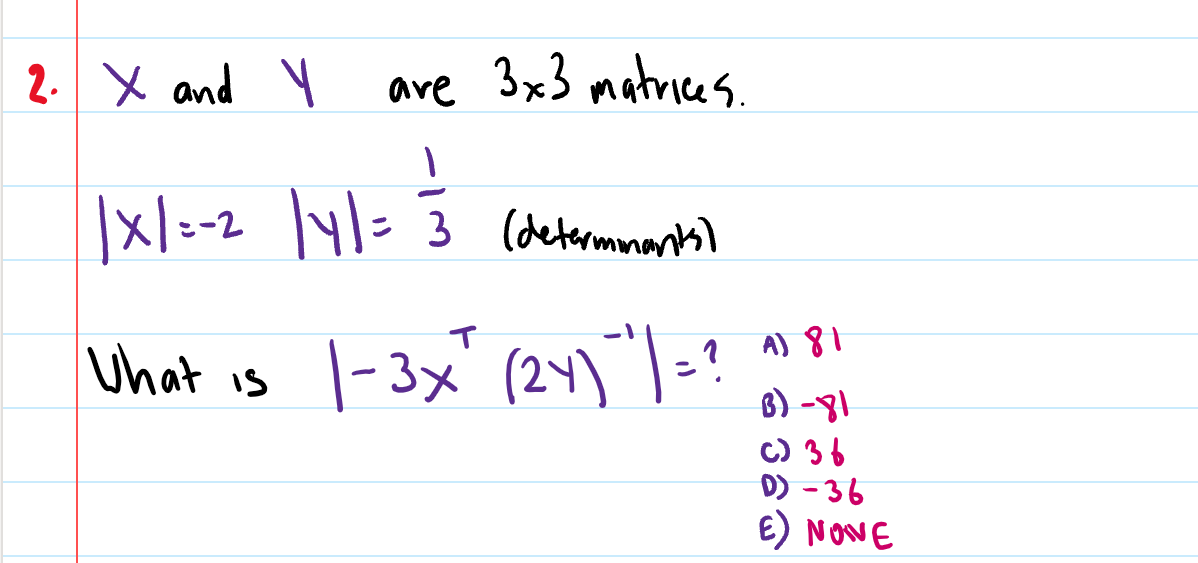 2. X and Y are 3x3 matrices.
|X|=-2 |Y|= 1/3 (determinants)
What is |-3X^T (2Y)^-1|=?
A) 81
B) -81
C) 36
D) -36
E) NONE